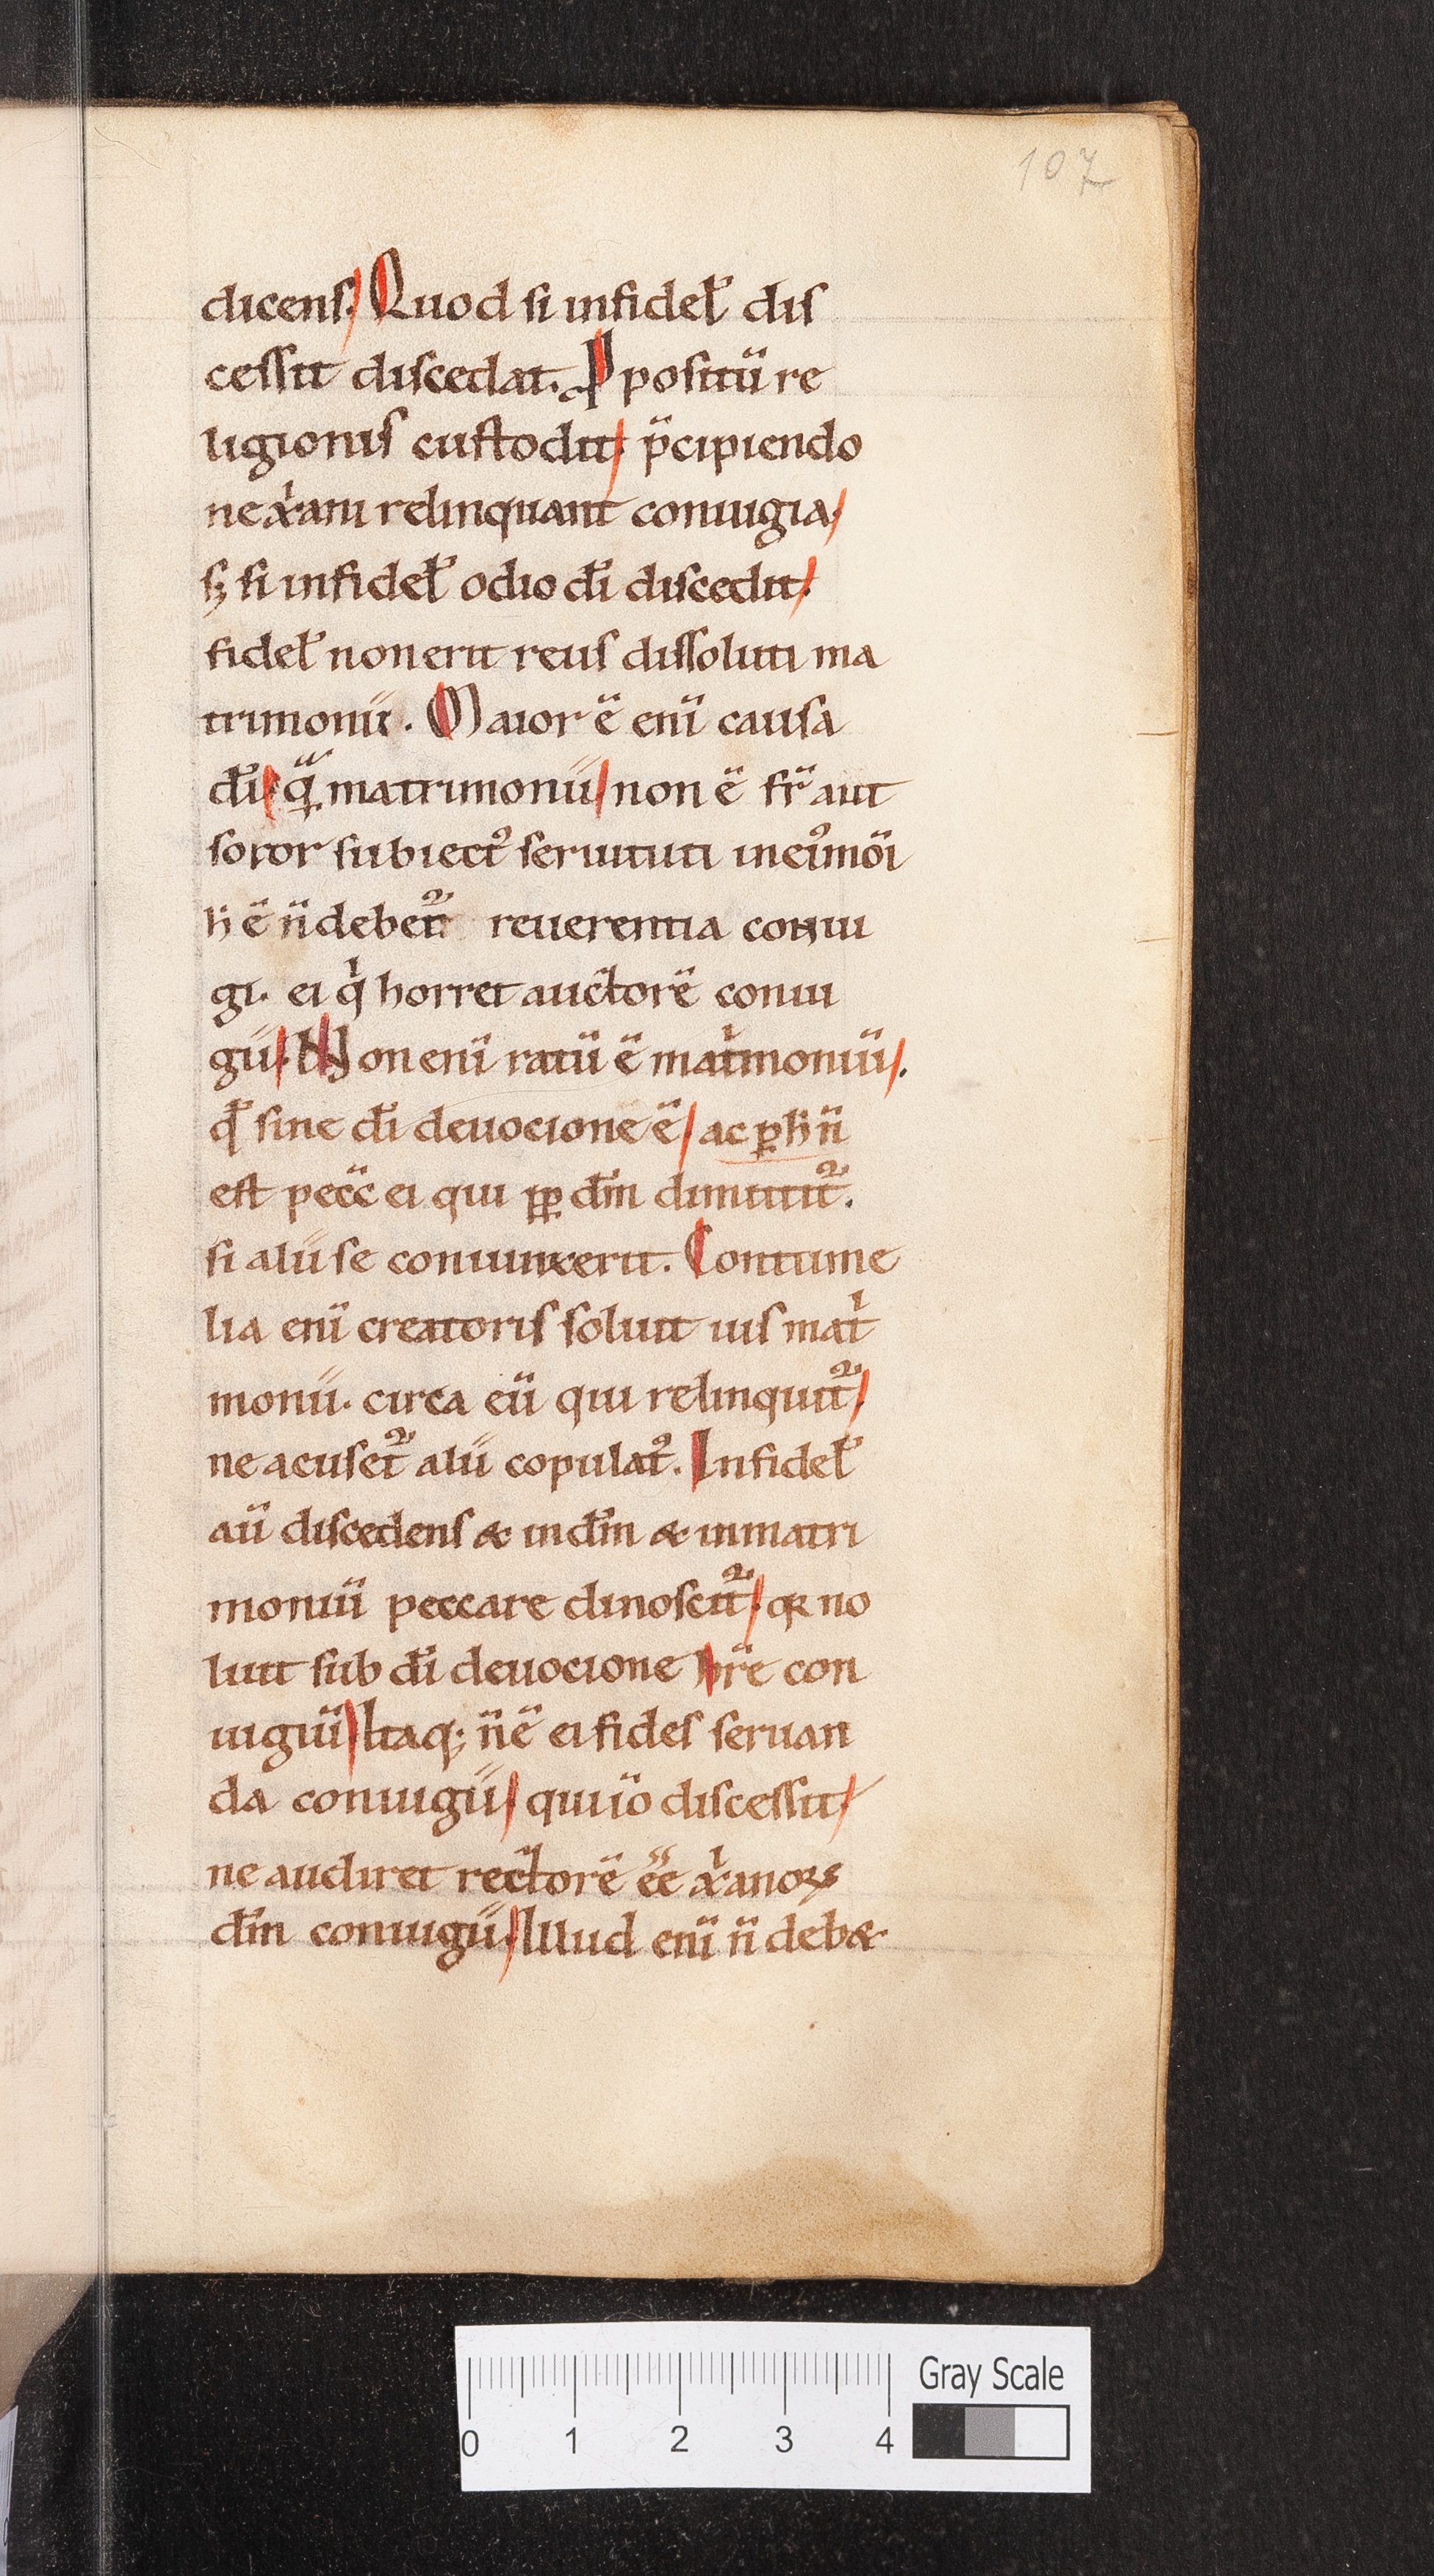 107
dicens. Quod si infidel̃ dis
cessit discedat. P̱positū re
ligionis custodit. p̄cipiendo
ne xͥani relinquant coniugia.
sꝫ si infidel̃ odio dī discedit.
fidel̃ non erit reus dissoluti ma
trimonii. Maior ē enī causa
dī. qᷓ matrimonii. non ē fr̄ aut
soror subiectꝰ seruituti in eiꝰmōi
h̄ ē n̄ debet᷑ reuerentia coniu
gi. ei qͥ horret auctorē coniu
gii. Non enī ratū ē matͥmoniū.
qđ sine dī deuocione ē. ac ꝑ h̄ n̄
est pecc̄ ei qui ꝓꝑ dm̄ dimittit᷑.
si alii se coniunxerit. Contume
lia enī creatoris soluit ius matͥ
monii. circa eū qui relinquit᷑.
ne acuset᷑ alii copulatꝰ. Infidel̃
aū discedens & in dm̄ & in matri
moniū peccare dinoscit᷑. qꝛ no
luit sub dī deuocione hr̄e con
iugiū. Itaqꝫ n̄ ē ei fides seruan
da coniugii. qui iō discessit.
ne audiret rectorē ēē xͥanoꝝ
dm̄ coniugii. Illud enī n̄ deb&
Gray Scale
0 1 2 3 4